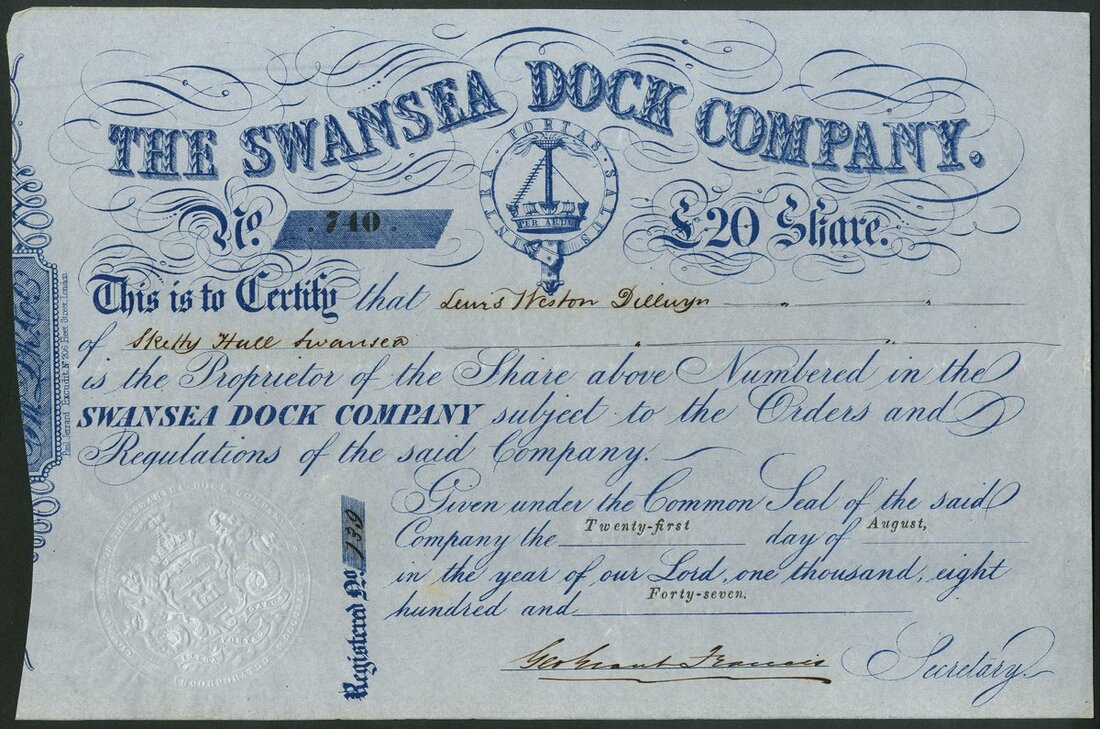 THE SWANSEA DOCK COMPANY.
INTRA · PORTAS · SALUS
PER ARTEM
No. . 740 . £20 Share.
This is to Certify that Lewis Weston Dillwyn
of Sketty Hall Swansea
is the Proprietor of the Share above Numbered in the
SWANSEA DOCK COMPANY subject to the Orders and
Regulations of the said Company.
Given under the Common Seal of the said
Company the Twenty-first day of August,
in the year of our Lord, one thousand, eight
hundred and Forty-seven.
Geo Grant Francis Secretary.
Registered No. 139
Paul Jerrard Excudit No. 206 Fleet Street London
SWANSEA DOCK COM
INTRA PORTAS SALUS
INCORPORATED